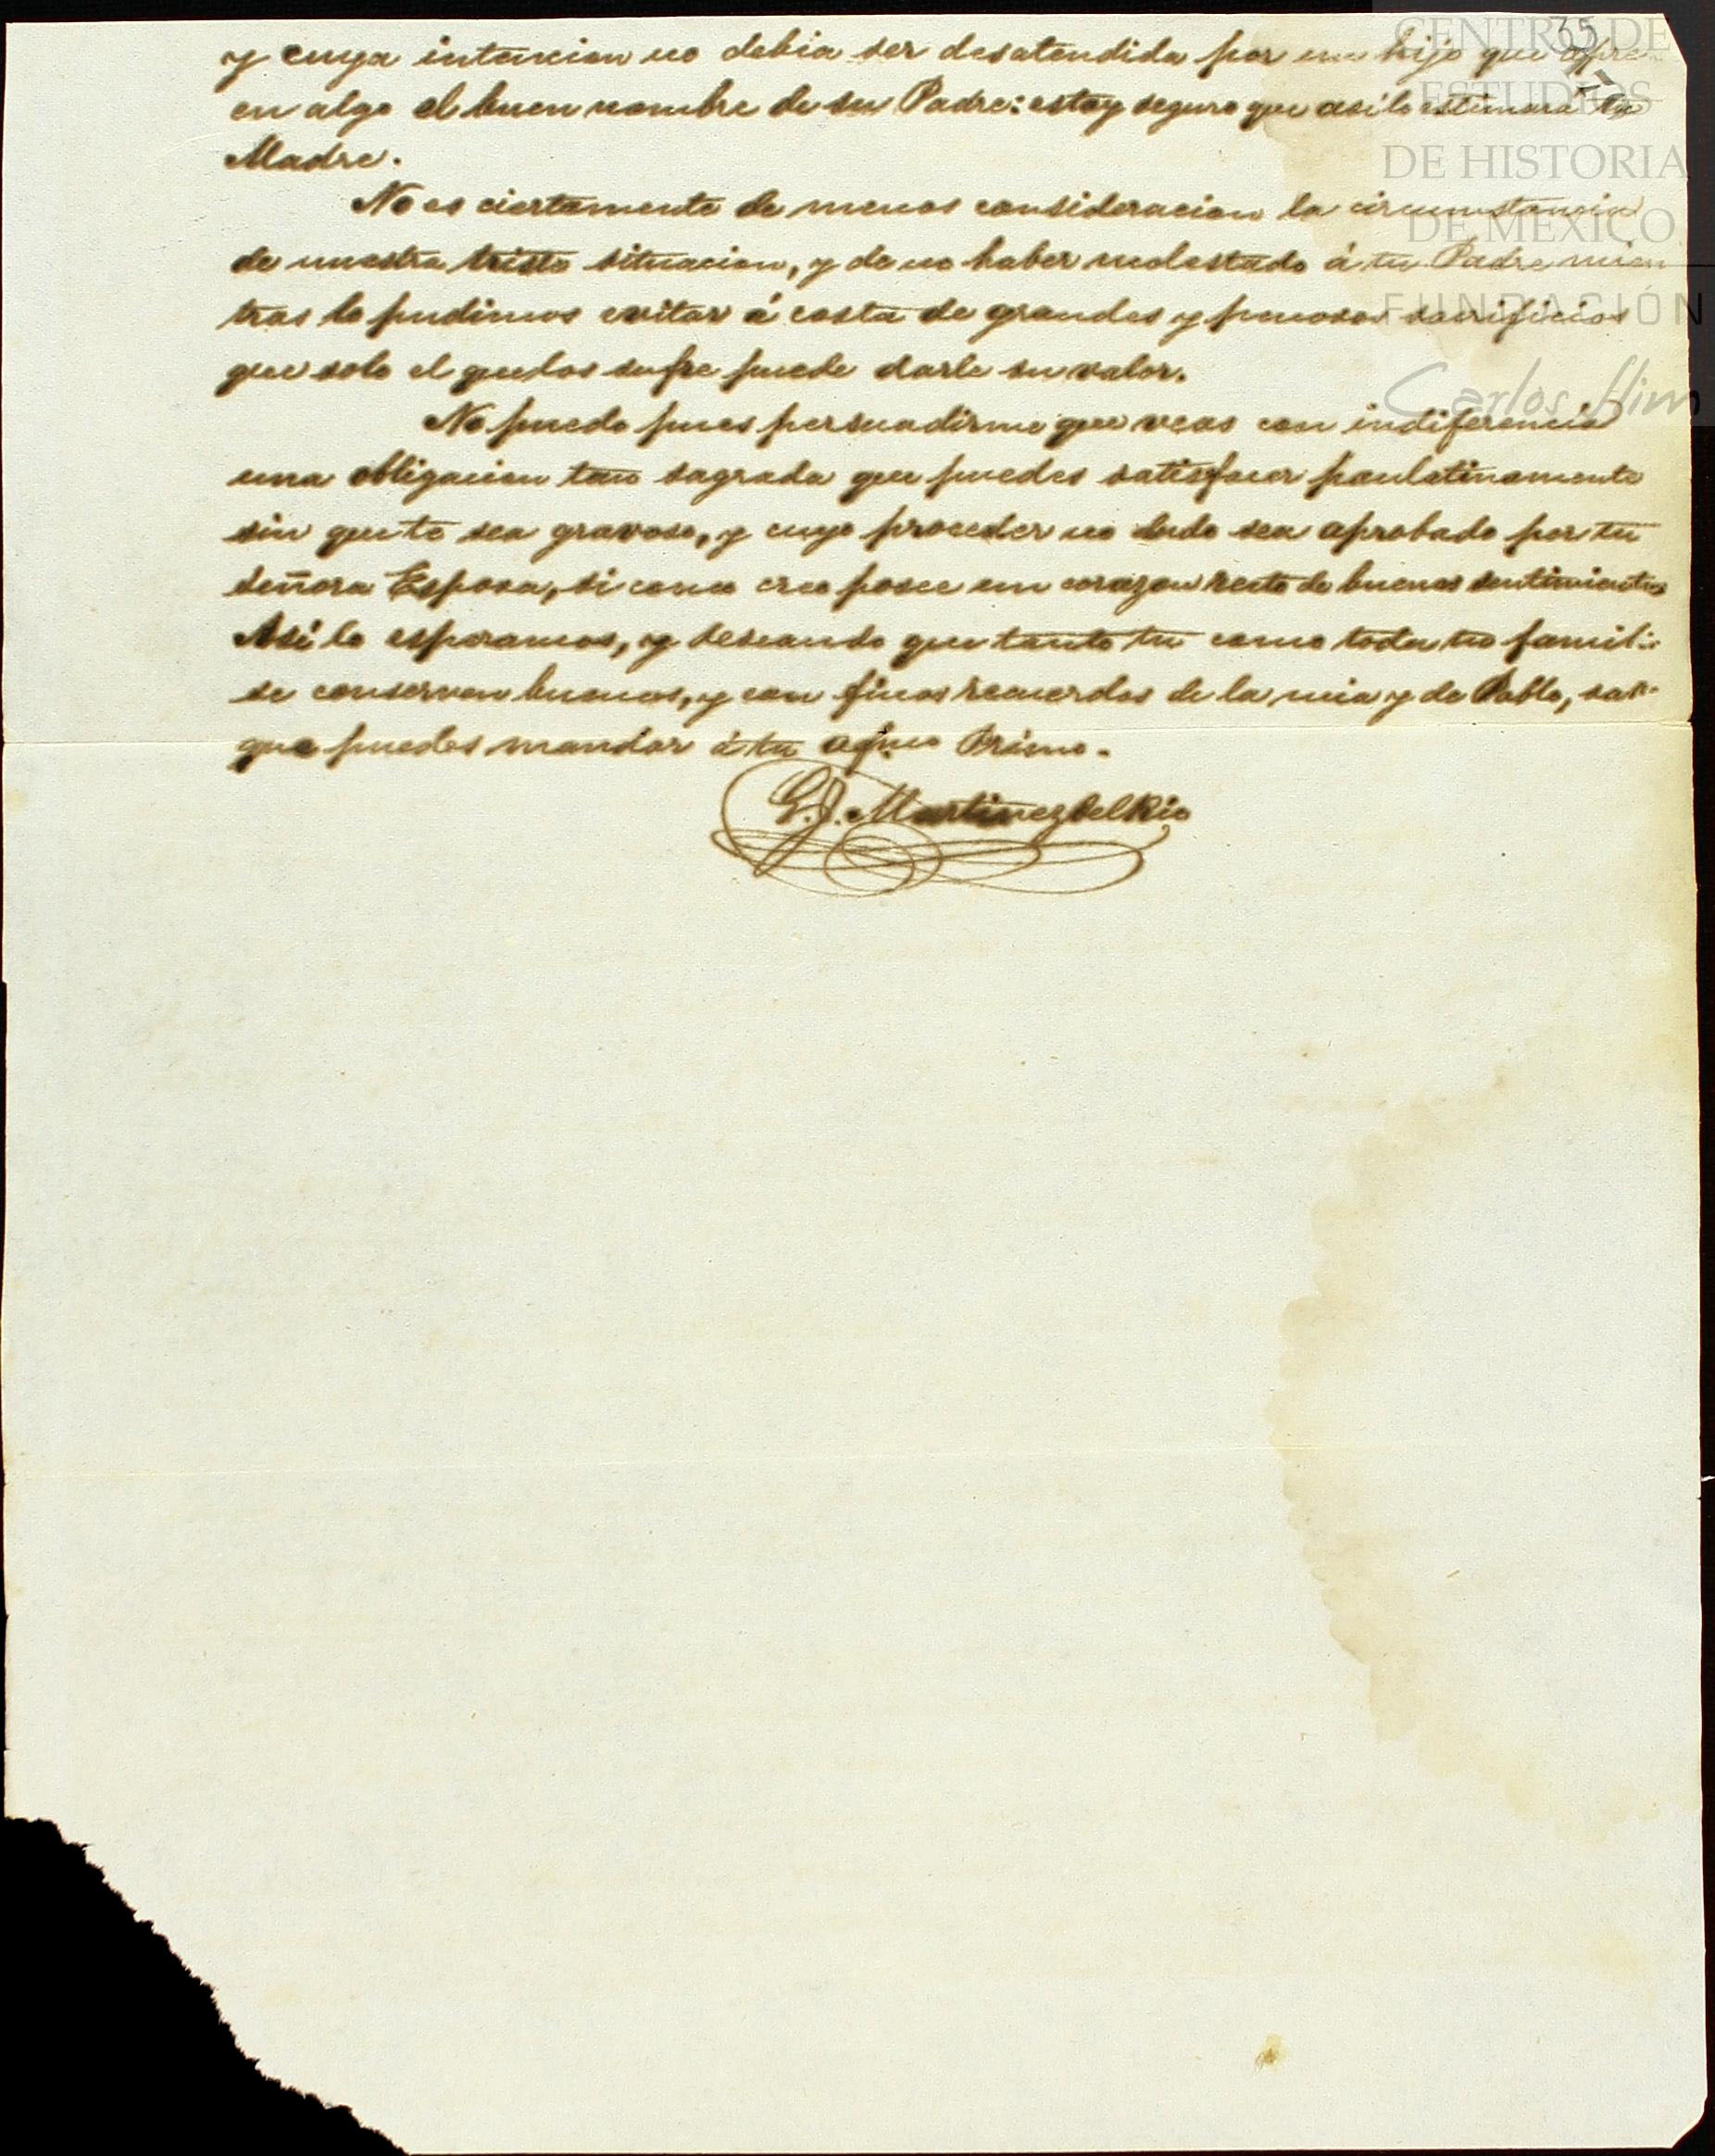 35
CENTRO DE
ESTUDIOS
DE HISTORIA
DE MÉXICO
FUNDACIÓN
Carlos Slim
y cuya intencion no debia ser desatendida por un hijo que apre-
en algo el buen nombre de su Padre: estoy seguro que asi lo estimará tu
Madre.
No es ciertamente de menos consideracion la circunstancia
de nuestra triste situacion, y de no haber molestado á tu Padre mien
tras lo pudimos evitar á costa de grandes y penosos sacrificios
que solo el que los sufre puede darle su valor.
No puedo pues persuadirme que veas con indiferencia
una obligacion tan sagrada que puedes satisfacer paulatinamente
sin que te sea gravoso, y cuyo proceder no dudo sea aprobado por tu
Señora Esposa, si como creo posee un corazon recto de buenos sentimientos
Asi lo esperamos, y deseando que tanto tu como toda tu famili
se conserven buenos, y con finos recuerdos de la mia y de Pablo, sabe
que puedes mandar á tu afmo Primo.
G. J. Martinez del Rio